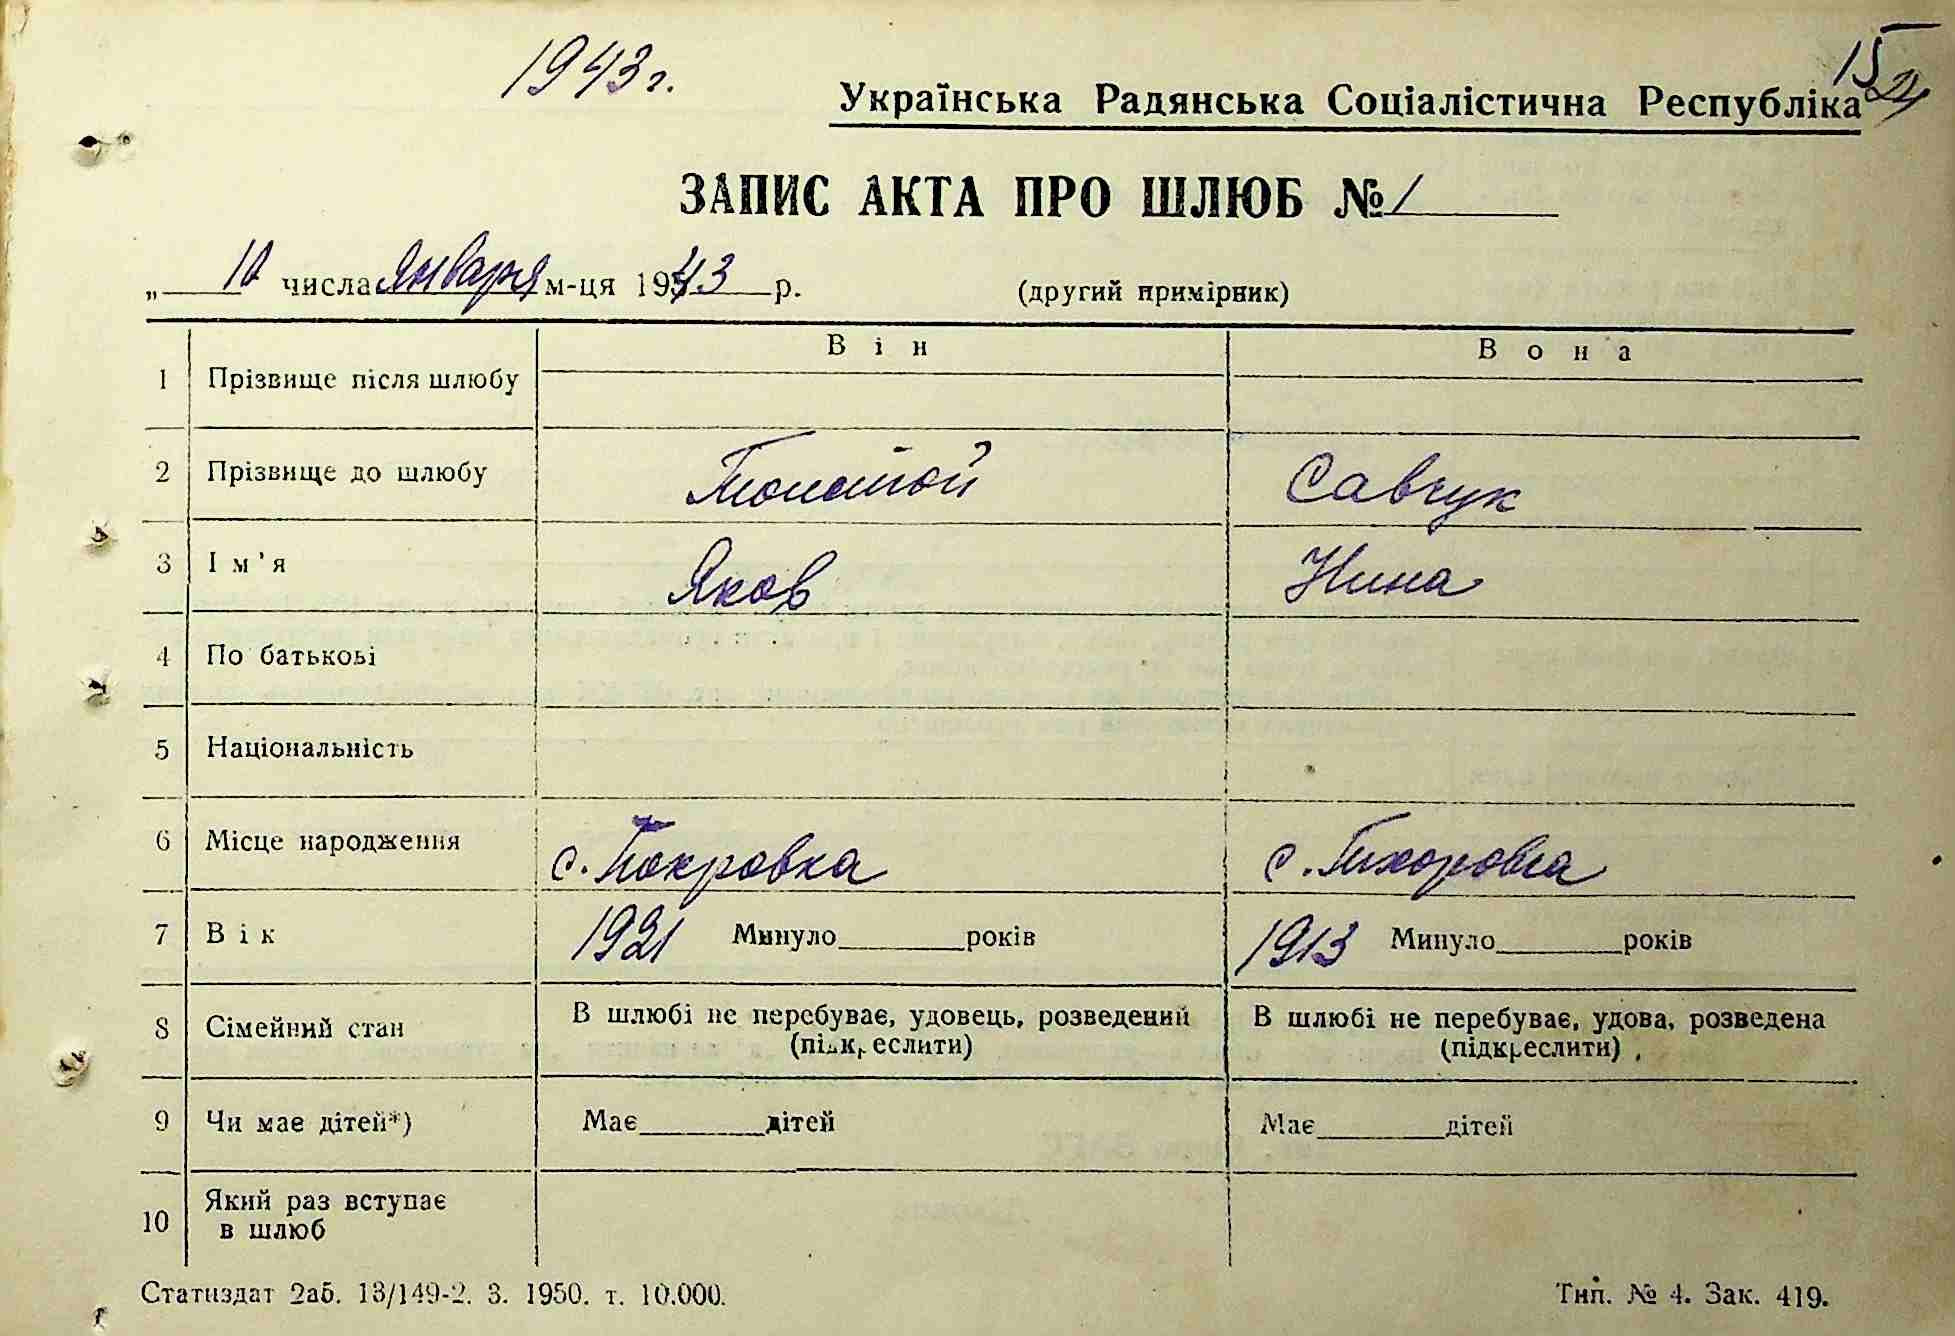 1943 г.
15
24
Українська Радянська Соціалістична Республіка
ЗАПИС АКТА ПРО ШЛЮБ № 1
„ 10 числа января м-ця 1943 р. (другий примірник)
Він Вона
1 Прізвище після шлюбу
2 Прізвище до шлюбу Толстой Савчук
3 Ім'я Яков Нина
4 По батькові
5 Національність
6 Місце народження с. Покровка с. Тихоровка
7 Вік 1921 Минуло років 1913 Минуло років
8 Сімейний стан В шлюбі не перебуває, удовець, розведений В шлюбі не перебуває, удова, розведена
(підкреслити) (підкреслити)
9 Чи має дітей*) Має дітей Має дітей
10 Який раз вступає
в шлюб
Статиздат 2аб. 13/149-2. 3. 1950. т. 10.000. Тип. № 4. Зак. 419.